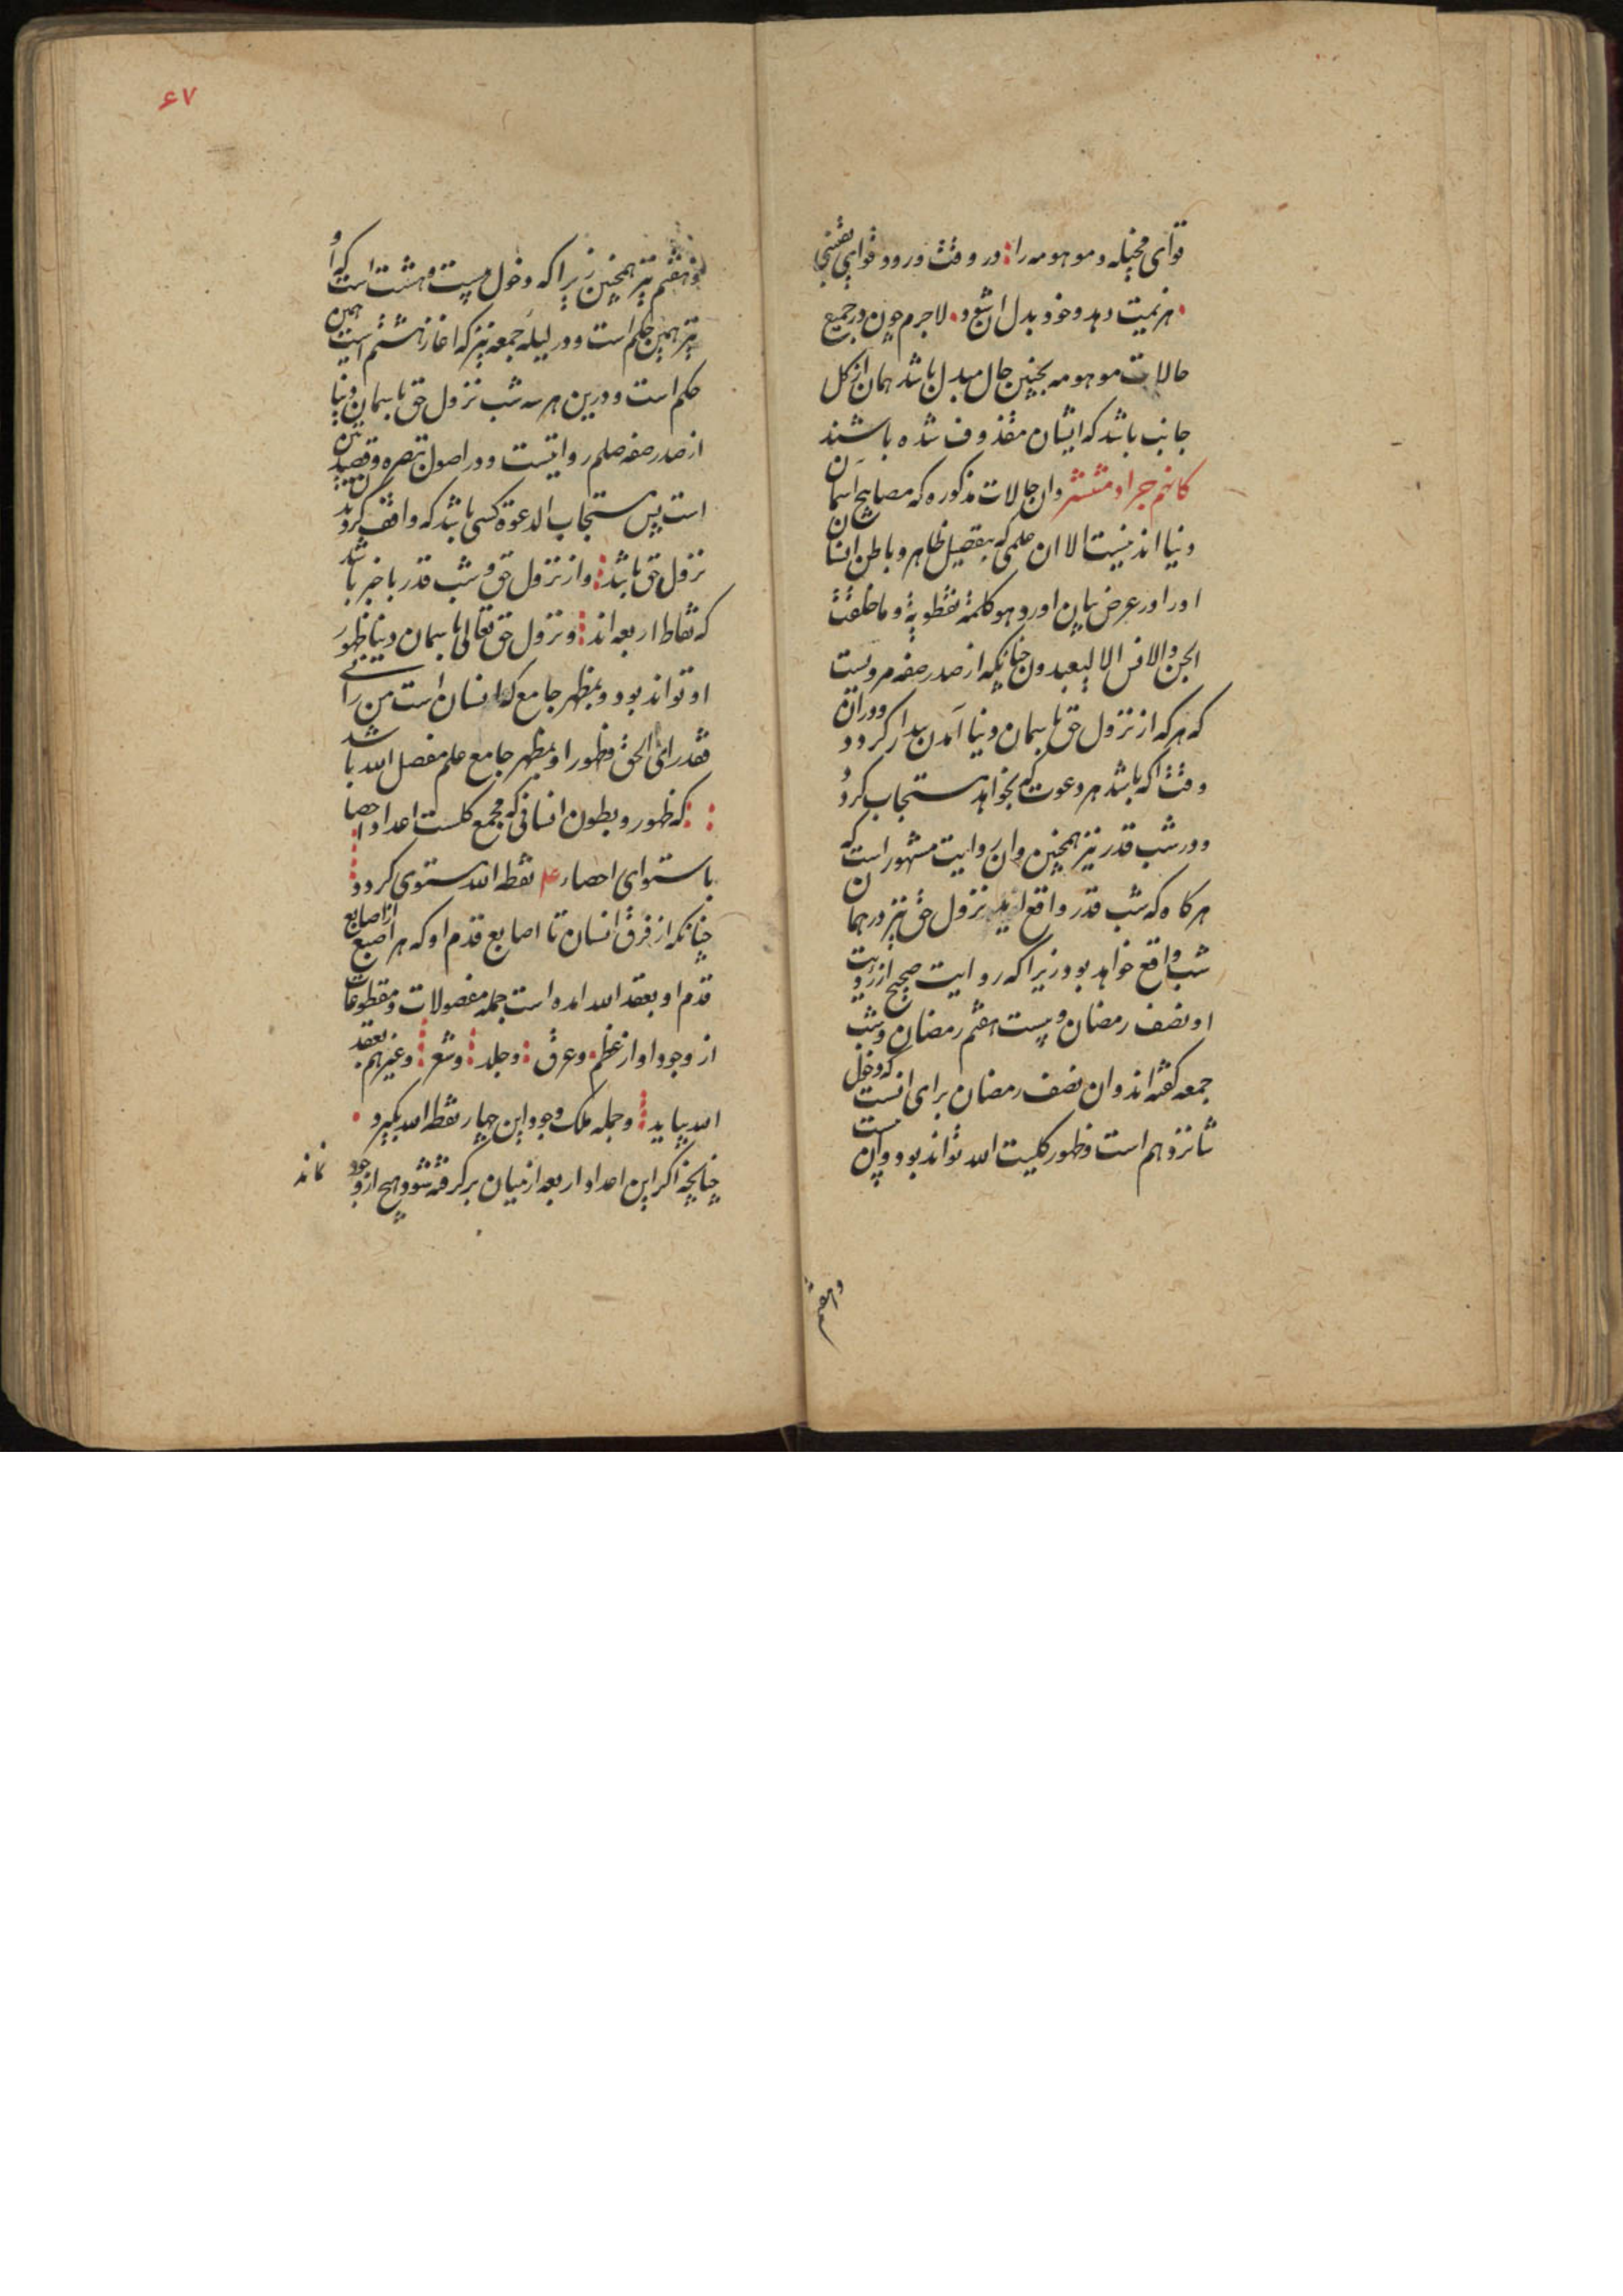 قوای مخیله و موهومه را در وقت ورود قوای یقینی
هزیمت دهد و خود بدل ان شود لاجرم چون در جمیع
حالات موهومه بچنین حال مبدل باشد همان از کل
جانب باشد که ایشان مقذوف شده باشند
کانهم جراد منتشر وان حالات مذکوره که مصابیح اسمان
دنیا اند نیست الا ان علمی که بتفصیل ظاهر و باطن انسان
اورا در عرض بیان اورد و هو کلمة نقطویة و ما خلقت
الجن والانس الا لیعبدون چنانکه از صدر صفه مرویست
که هرکه از نزول حق باسمان دنیا آمدن بیدار کردد ودران
وقت اکه باشد هر دعوت که بخواهد مستجاب کردد
ودر شب قدر نیز همچنین وان روایت مشهور است که
هرکاه که شب قدر واقع نزول حق نیز در همان
شب واقع خواهد بود زیرا که روایت صحیح از رویت
او نصف رمضان و بیست هفتم رمضان و شب
جمعه کفته اند وان نصف رمضان برای انست که دخل
شانزدهم است و ظهور کلیت الله تواند بود و ان بیست
وهفتم
وهفتم نیز همچنین زیرا که دخول بیست و هشت است که او
نیز همین حکم است ودر لیله جمعه نیز که اغاز هشتم است همین
حکم است ودرین هر سه شب نزول حق باسمان دنیا
از صدر صفه صلم روایتست ودر اصول تبصره و قصید
است پس مستجاب الدعوة کسی باشد که واقف کردد
نزول حق باشد واز نزول حق و شب قدر با خبر باشد
که نقاط اربعه اند و نزول حق تعالی باسمان دنیا ظهور
او تواند بود و بمظهر جامع که انسان است من رانی
فقد رای الحق و ظهور او بمظهر جامع علم مفصل الله باشد
که ظهور و بطون انسانی که مجمع کلست اعداد احصا
باستوای احصاء ۴ نقطه الله مستوی کردد
چنانکه از فرق انسان تا اصابع قدم او که هر اصبع از اصابع
قدم او بعقد الله امده است جمله مفصولات و مقطوعات
از وجود او از عظم وعرق وجلد وشعر وغیرهم بعقد
الله بیابد وجمله ملک وجود این چهار نقطه الله بکیرد
چنانچه اکر این اعداد اربعه از میان برکرفته شود هیچ از وجود نماند
۶۷